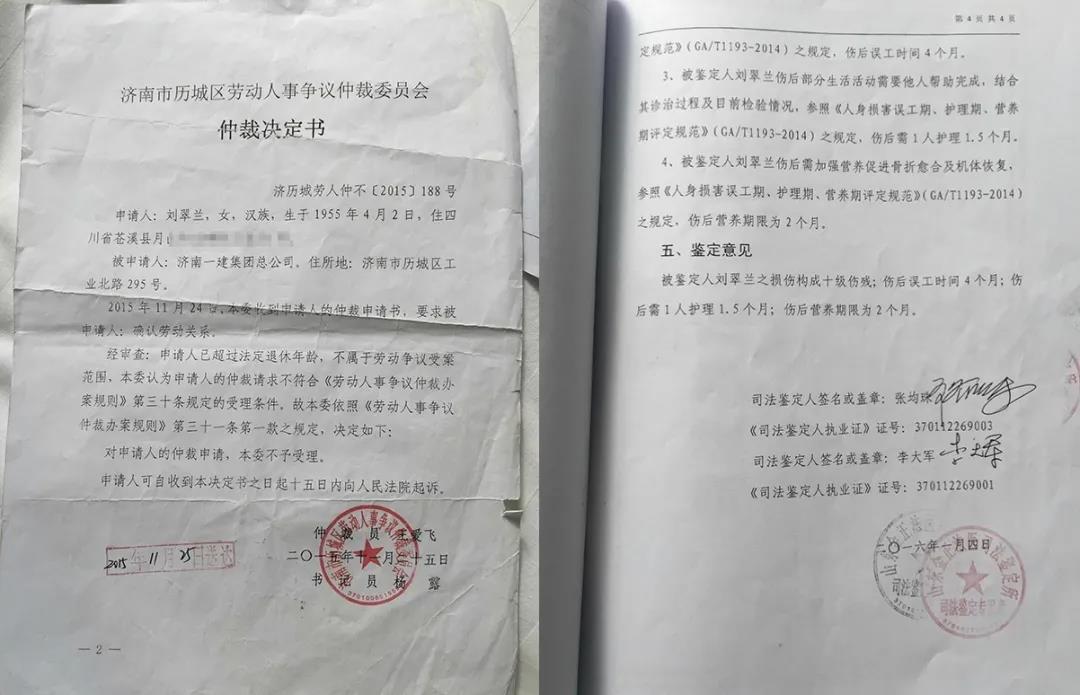 济南市历城区劳动人事争议仲裁委员会
仲裁决定书
济历城劳人仲不〔2015〕188号
申请人：刘翠兰，女，汉族，生于1955年4月2日，住四
川省苍溪县月
被申请人：济南一建集团总公司。住所地：济南市历城区工
业北路295号。
2015年11月24日，本委收到申请人的仲裁申请书，要求被
申请人：确认劳动关系。
经审查：申请人已超过法定退休年龄，不属于劳动争议受案
范围、本委认为申请人的仲裁请求不符合《劳动人事争议仲裁办
案规则》第三十条规定的受理条件。故本委依照《劳动人事争议
仲裁办案规则》第三十一条第一款之规定，决定如下：
对申请人的仲裁申请，本委不予受理。
申请人可自收到本决定书之日起十五日内向人民法院起诉。
仲裁员 王爱飞
二〇一五年十一月二十五日
书记员 杨露
2015年11月25日送达
— 2 —
第4页共4页
定规范》（GA/T1193-2014）之规定，伤后误工时间4个月。
3、被鉴定人刘翠兰伤后部分生活活动需要他人帮助完成，结合
其诊治过程及目前检验情况，参照《人身损害误工期、护理期、营养
期评定规范》（GA/T1193-2014）之规定，伤后需1人护理1.5个月。
4、被鉴定人刘翠兰伤后需加强营养促进骨折愈合及机体恢复，
参照《人身损害误工期、护理期、营养期评定规范》（GA/T1193-2014）
之规定，伤后营养期限为2个月。
五、鉴定意见
被鉴定人刘翠兰之损伤构成十级伤残；伤后误工时间4个月；伤
后需1人护理1.5个月；伤后营养期限为2个月。
司法鉴定人签名或盖章：张均珠
《司法鉴定人执业证》证号：370112269003
司法鉴定人签名或盖章：李大军 李大军
《司法鉴定人执业证》证号：370112269001
二〇一六年一月四日
司法鉴定专用章